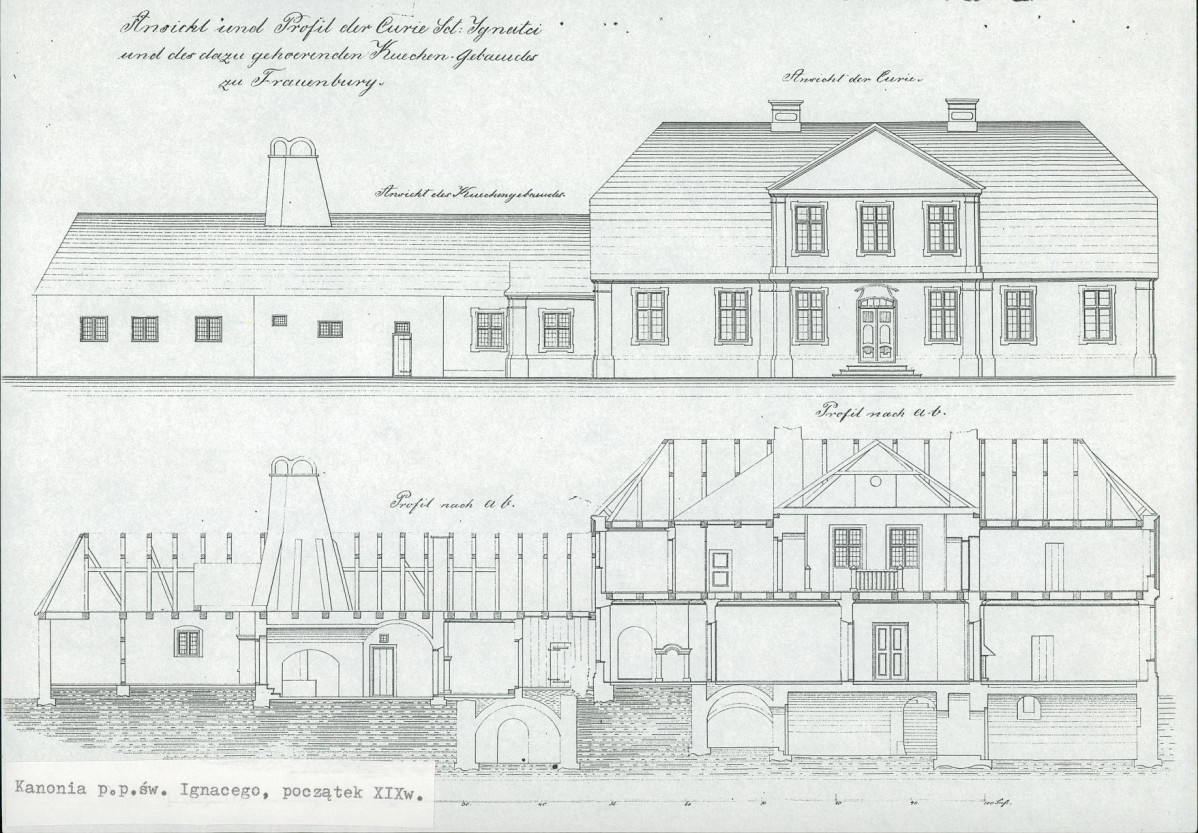 Ansicht und Profil der Curie Sct: Ignatii
und des dazu gehoerenden Kuechen-Gebaeudes
zu Frauenburg.
Ansicht der Curie.
Ansicht des Kuechengebaeudes.
Profil nach a-b.
Profil nach a b.
Kanonia p.p.św. Ignacego, początek XIXw.